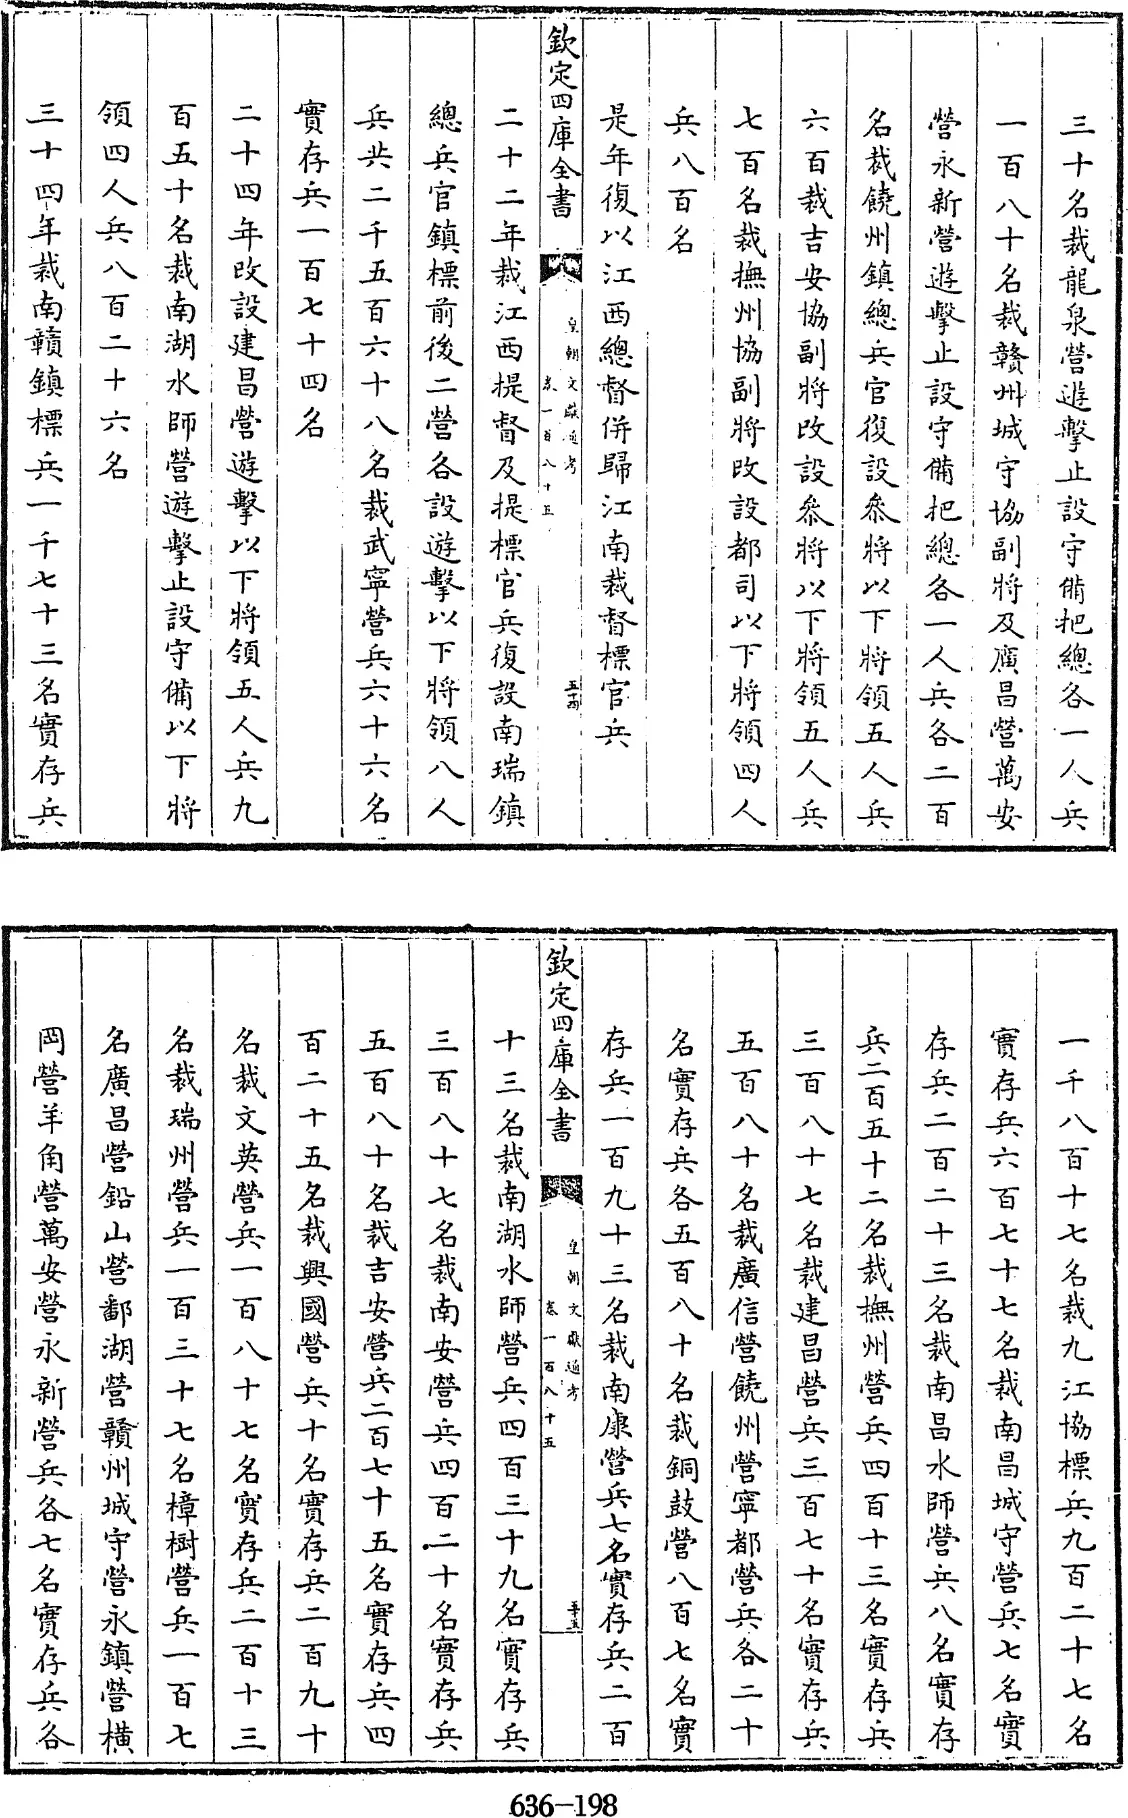 三十名裁龍泉營遊擊止設守備把總各一人兵
一百八十名裁贛州城守協副將及廣昌營萬安
營永新營遊擊止設守備把總各一人兵各二百
名裁饒州鎮總兵官復設叅將以下將領五人兵
六百裁吉安協副將改設叅將以下將領五人兵
七百名裁撫州協副將改設都司以下將領四人
兵八百名
是年復以江西總督併歸江南裁督標官兵
欽定四庫全書
皇朝文獻通考
卷一百八十五
五十四
二十二年裁江西提督及提標官兵復設南瑞鎮
總兵官鎮標前後二營各設遊擊以下將領八人
兵共二千五百六十八名裁武寧營兵六十六名
實存兵一百七十四名
二十四年改設建昌營遊擊以下將領五人兵九
百五十名裁南湖水師營遊擊止設守備以下將
領四人兵八百二十六名
三十四年裁南贛鎮標兵一千七十三名實存兵
一千八百十七名裁九江協標兵九百二十七名
實存兵六百七十七名裁南昌城守營兵七名實
存兵二百二十三名裁南昌水師營兵八名實存
兵二百五十二名裁撫州營兵四百十三名實存兵
三百八十七名裁建昌營兵三百七十名實存兵
五百八十名裁廣信營饒州營寧都營兵各二十
名實存兵各五百八十名裁銅鼓營八百七名實
存兵一百九十三名裁南康營兵七名實存兵二百
欽定四庫全書
皇朝文獻通考
卷一百八十五
五十五
十三名裁南湖水師營兵四百三十九名實存兵
三百八十七名裁南安營兵四百二十名實存兵
五百八十名裁吉安營兵二百七十五名實存兵四
百二十五名裁興國營兵十名實存兵二百九十
名裁文英營兵一百八十七名實存兵二百十三
名裁瑞州營兵一百三十七名樟樹營兵一百七
名廣昌營鉛山營鄱湖營贛州城守營永鎮營橫
岡營羊角營萬安營永新營兵各七名實存兵各
636-198